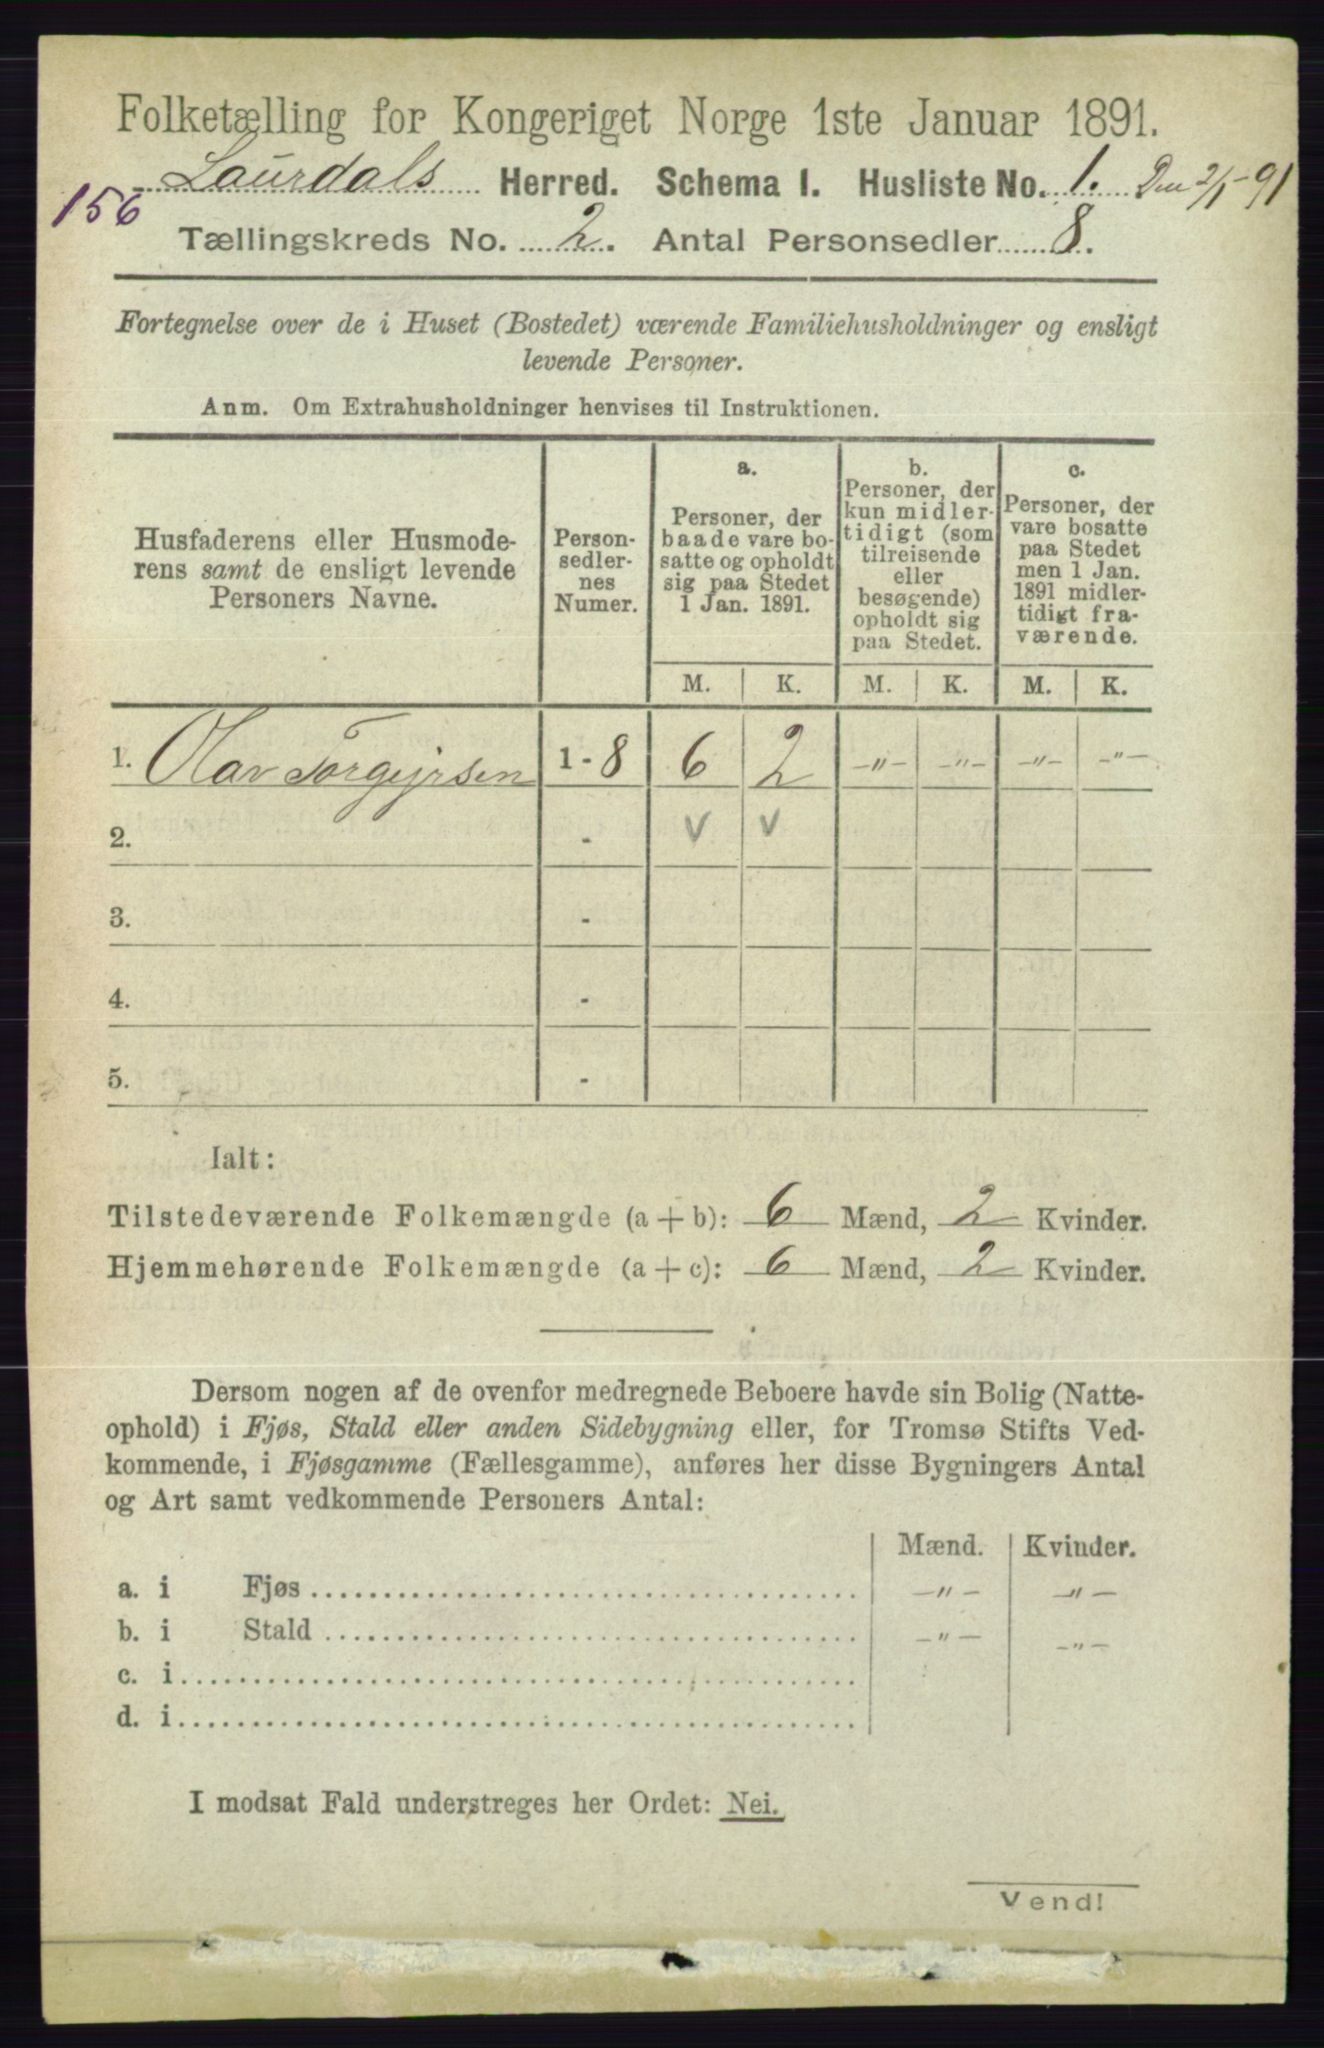 Folketælling for Kongeriget Norge 1ste Januar 1891.
Laurdals Herred. Schema I. Husliste No. 1. Den 2/1-91
156
Tællingskreds No. 2. Antal Personsedler 8.
Fortegnelse over de i Huset (Bostedet) værende Familiehusholdninger og ensligt
levende Personer.
Anm. Om Extrahusholdninger henvises til Instruktionen.
Husfaderens eller Husmode-
rens samt de ensligt levende
Personers Navne.
Person-
sedler-
nes
Numer.
a.
Personer, der
baade vare bo-
satte og opholdt
sig paa Stedet
1 Jan. 1891.
b.
Personer, der
kun midler-
tidigt (som
tilreisende
eller
besøgende)
opholdt sig
paa Stedet.
c.
Personer, der
vare bosatte
paa Stedet
men 1 Jan.
1891 midler-
tidigt fra-
værende.
M. K. M. K. M. K.
1. Olav Torgejrsen 1 - 8 6 2 -"- -"- -"- -"-
2. - v v
3. -
4. -
5. -
Ialt:
Tilstedeværende Folkemængde (a + b): 6 Mænd, 2 Kvinder.
Hjemmehørende Folkemængde (a + c): 6 Mænd, 2 Kvinder.
Dersom nogen af de ovenfor medregnede Beboere havde sin Bolig (Natte-
ophold) i Fjøs, Stald eller anden Sidebygning eller, for Tromsø Stifts Ved-
kommende, i Fjøsgamme (Fællesgamme), anføres her disse Bygningers Antal
og Art samt vedkommende Personers Antal:
Mænd. Kvinder.
a. i Fjøs -"- -"-
b. i Stald -"- -"-
c. i
d. i
I modsat Fald understreges her Ordet: Nei.
Vend!